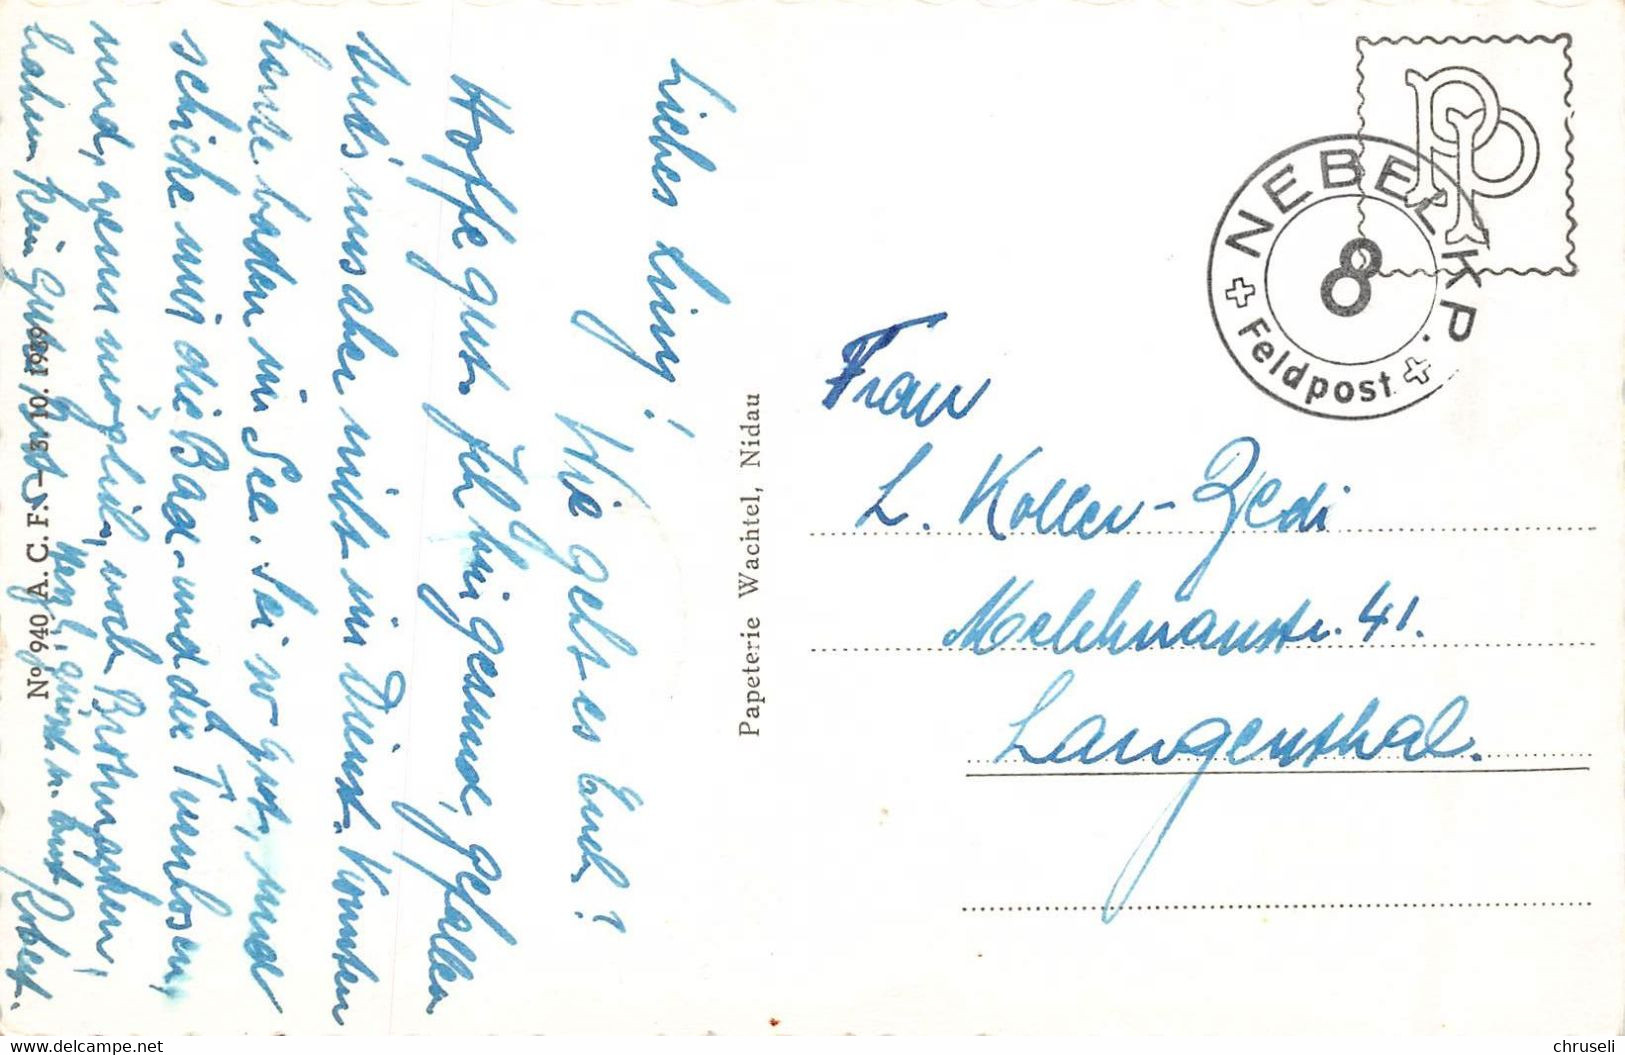 Liebes Liny!
Wie geht es Euch?
Hoffe gut. Ich bin gesund, gefallen
tuts uns aber nicht im Dienst. Konnten
heute baden im See. Sei so gut, und
schicke mir die Bad- und der Turnhosen,
und, wenn möglich, noch Brotmarken,
haben kein
herzl. grüsst u. küsst Robert.
No 940 A. C. F. – 3. 10. 1939
Papeterie Wachtel, Nidau
NEBEL KP.
8
Feldpost
PP
Frau
L. Koller-Zedi
Melchnaustr. 41.
Langenthal.
www.delcampe.net
chruseli